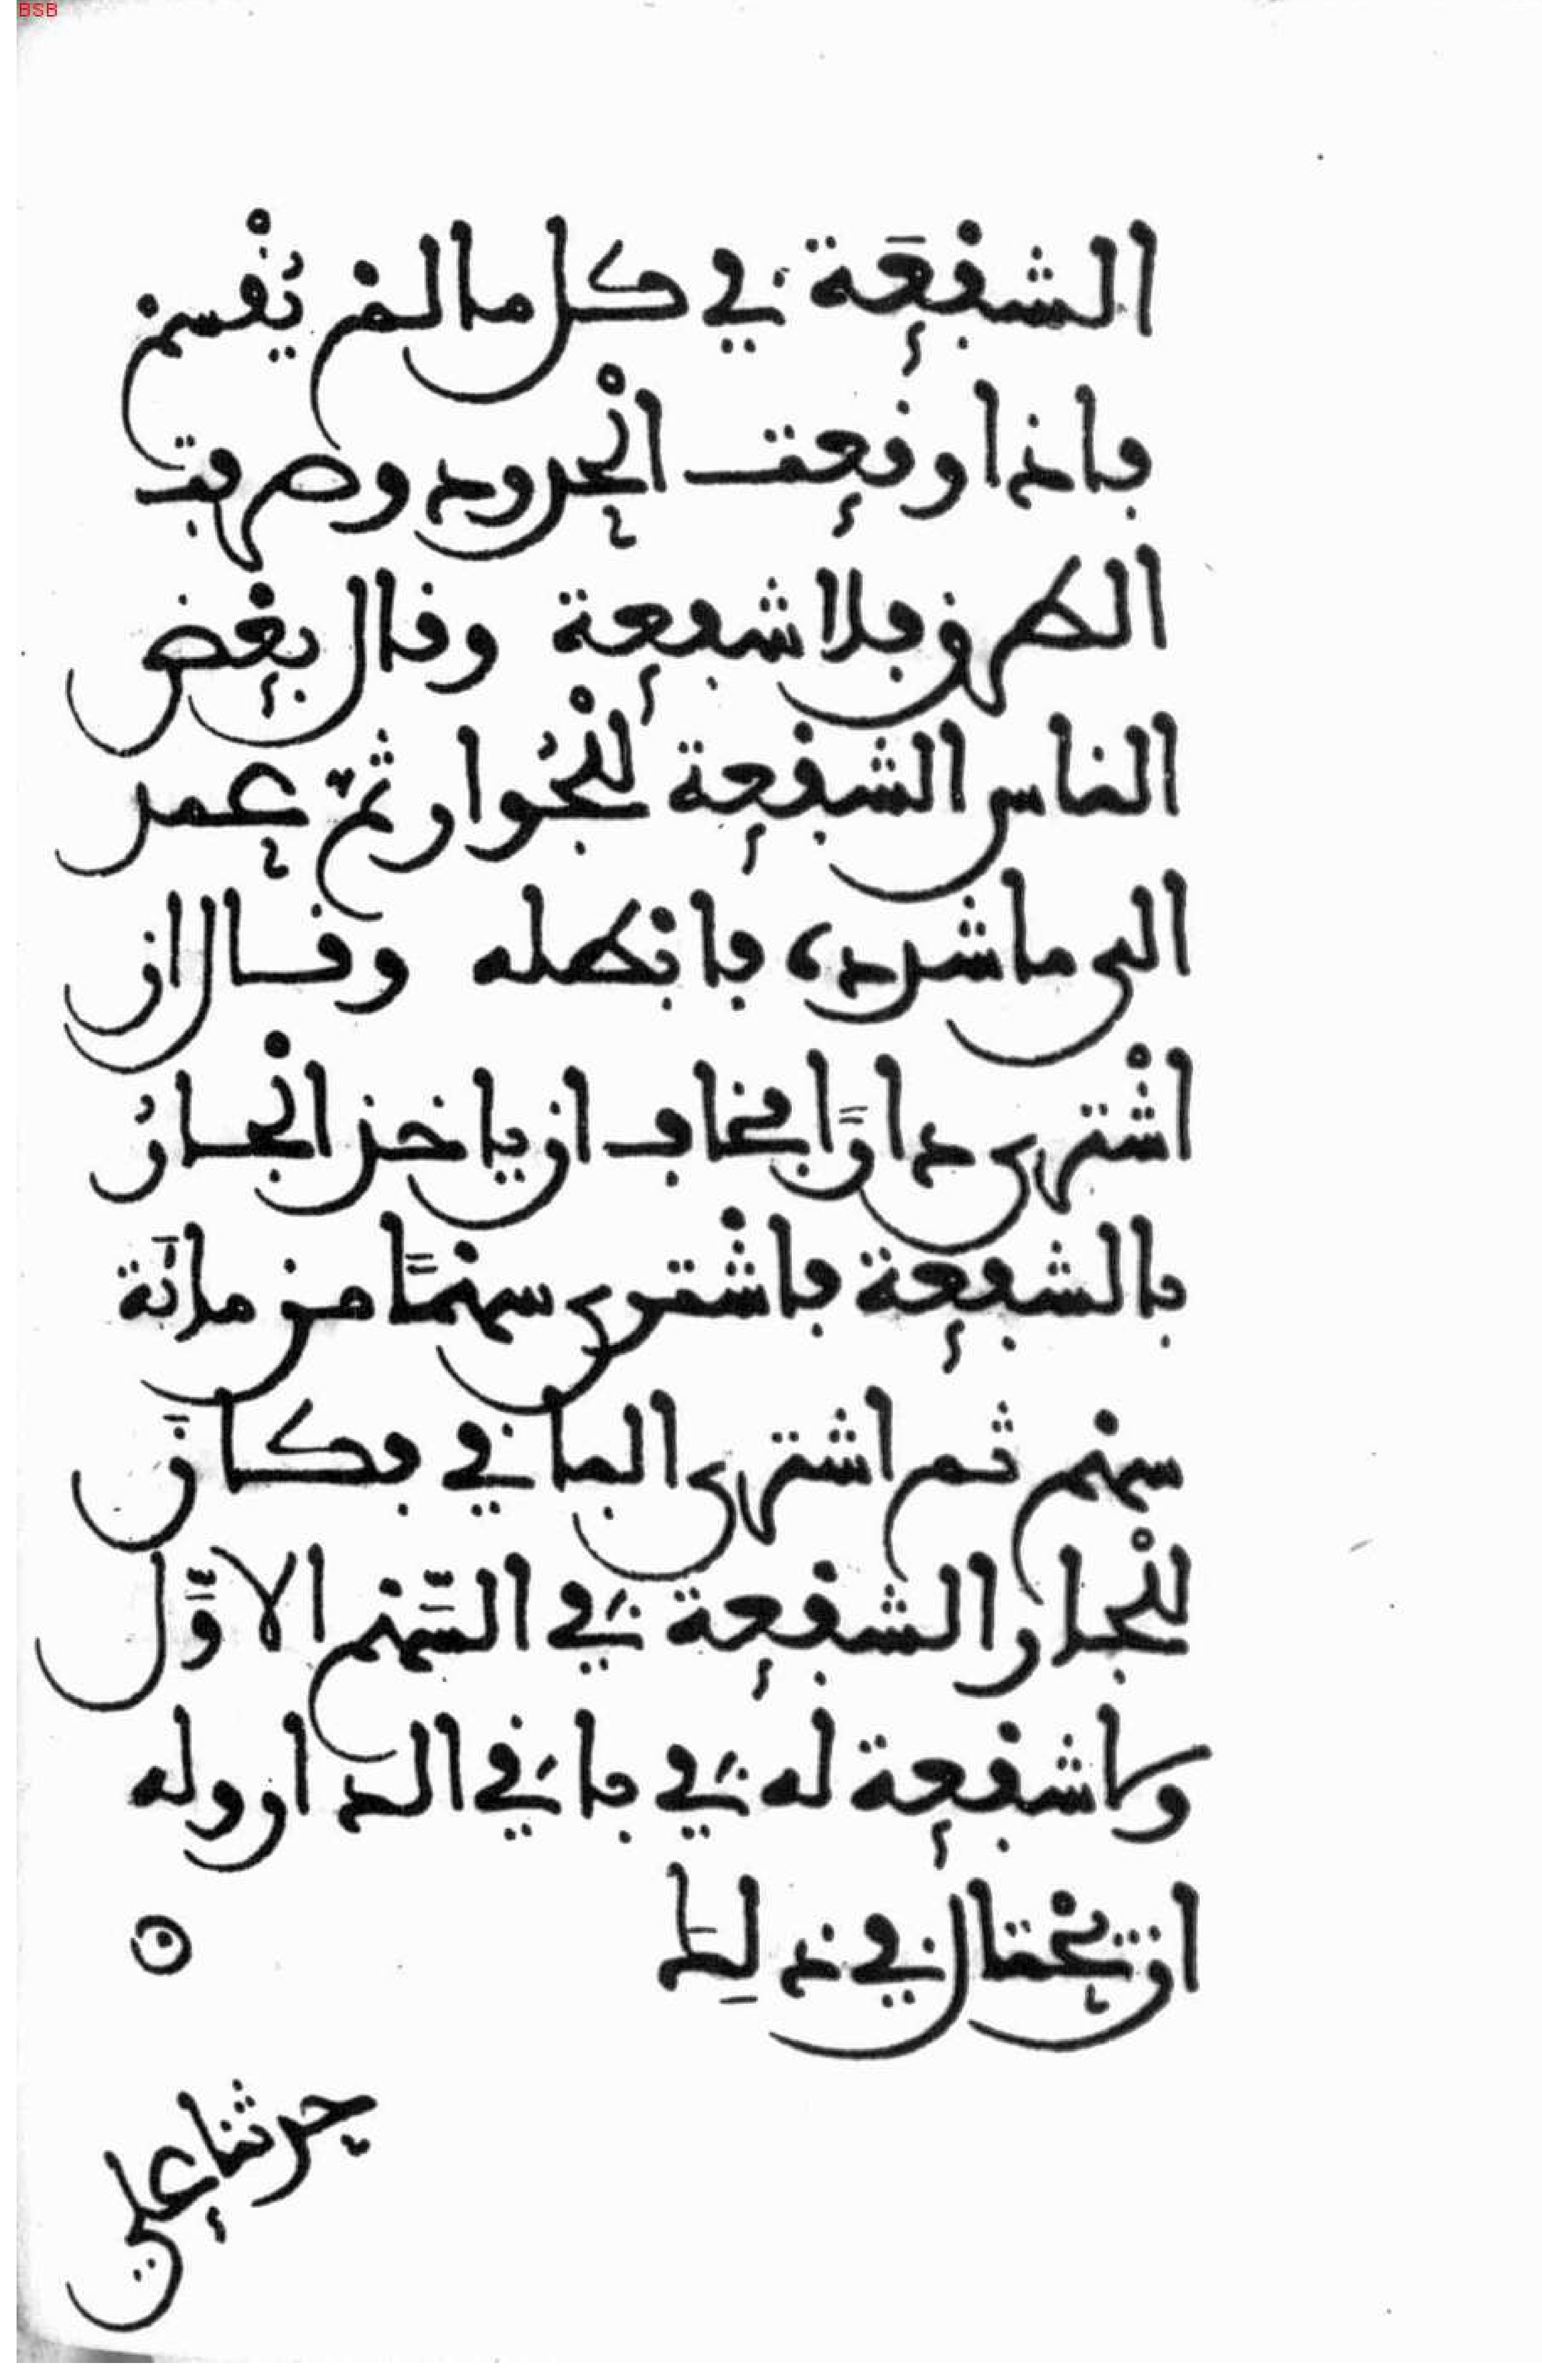 BSB
الشفعَة في كل ما لم يُقْسم
فاذا وقعت الْحدود وصرفت
الطرق فلا شفعة وقال بعْض
الناس الشفعة للْجُوار ثمّ عمد
الى ما شدده فابطله وقال ان
اشْترى دارًا فخاف ان ياخذ الْجارُ
بالشفعة فاشْترى سهمًا من مائَة
سهم ثم اشترى الباقي فكانَ
للْجار الشفعة في السَّهم الاوَّل
ولا شفعة له في باقي الدار وله
ان يحْتال في ذلِكَ
حدثنا علي